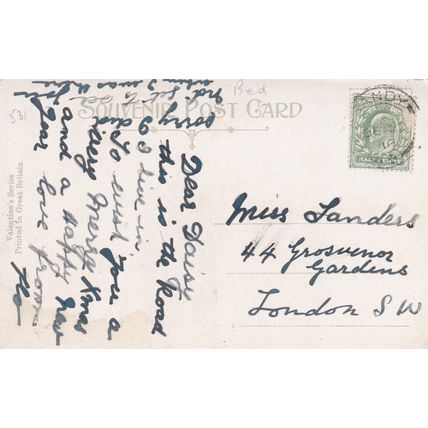 SOUVENIR POST CARD
Bed
531
Valentine's Series
Printed in Great Britain
ANDY
SE
HALFPENNY
Dear Daisy
this is the Road
I live in
sorry I did
To wish you a
very Merry Xmas
and a Happy New
Year love from
Flo
Miss Sanders
44 Grosvenor
Gardens
London S W